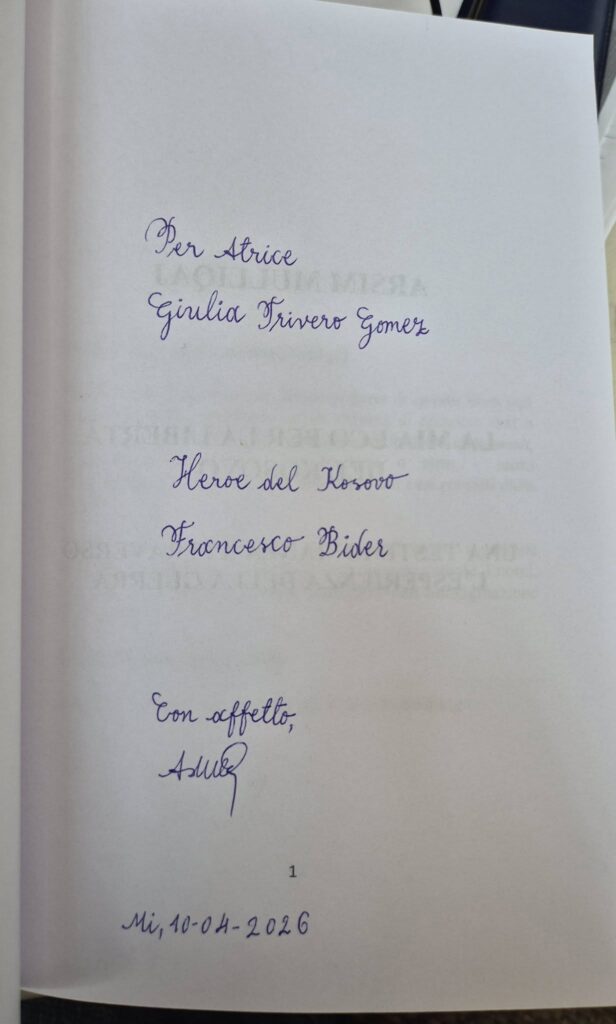 Per Atrice
Giulia Trivero Gomez
Heroe del Kosovo
Francesco Bider
Con affetto,
1
Mi, 10-04-2026